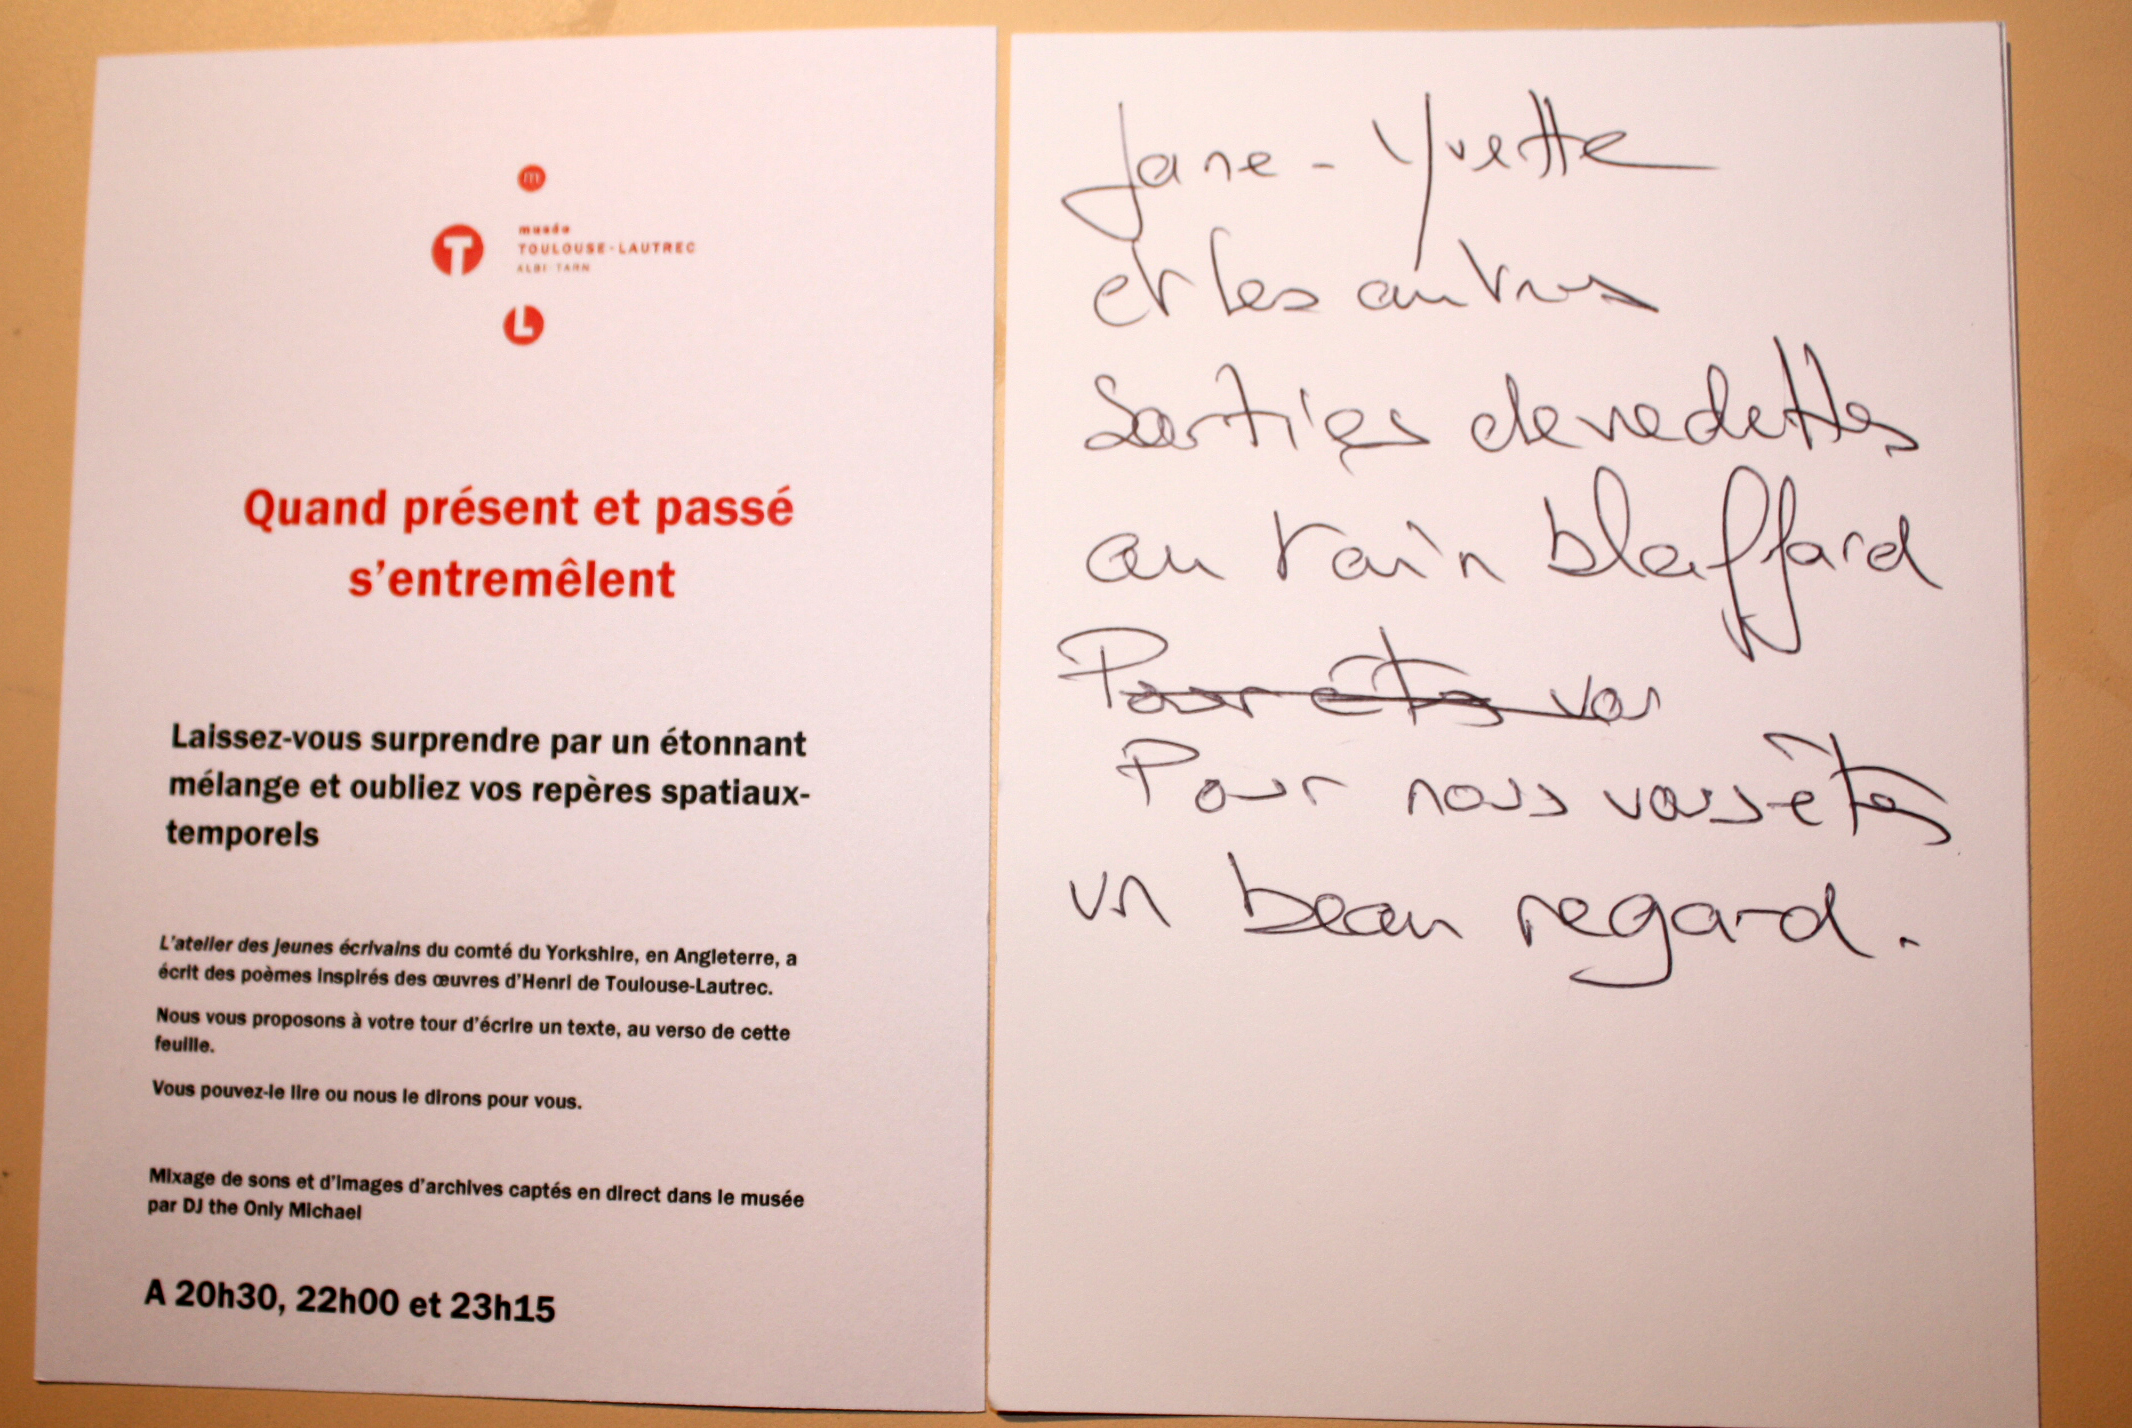 m
T
musée
TOULOUSE-LAUTREC
ALBI-TARN
L
Quand présent et passé
s'entremêlent
Laissez-vous surprendre par un étonnant
mélange et oubliez vos repères spatiaux-
temporels
L'atelier des jeunes écrivains du comté du Yorkshire, en Angleterre, a
écrit des poèmes inspirés des œuvres d'Henri de Toulouse-Lautrec.
Nous vous proposons à votre tour d'écrire un texte, au verso de cette
feuille.
Vous pouvez-le lire ou nous le dirons pour vous.
Mixage de sons et d'images d'archives captés en direct dans le musée
par DJ the Only Michael
A 20h30, 22h00 et 23h15
Jane - Yvette
et les autres
Sorties de vedettes
au teint blaffard
Pour êtes vous
Pour nous vous êtes
un beau regard.